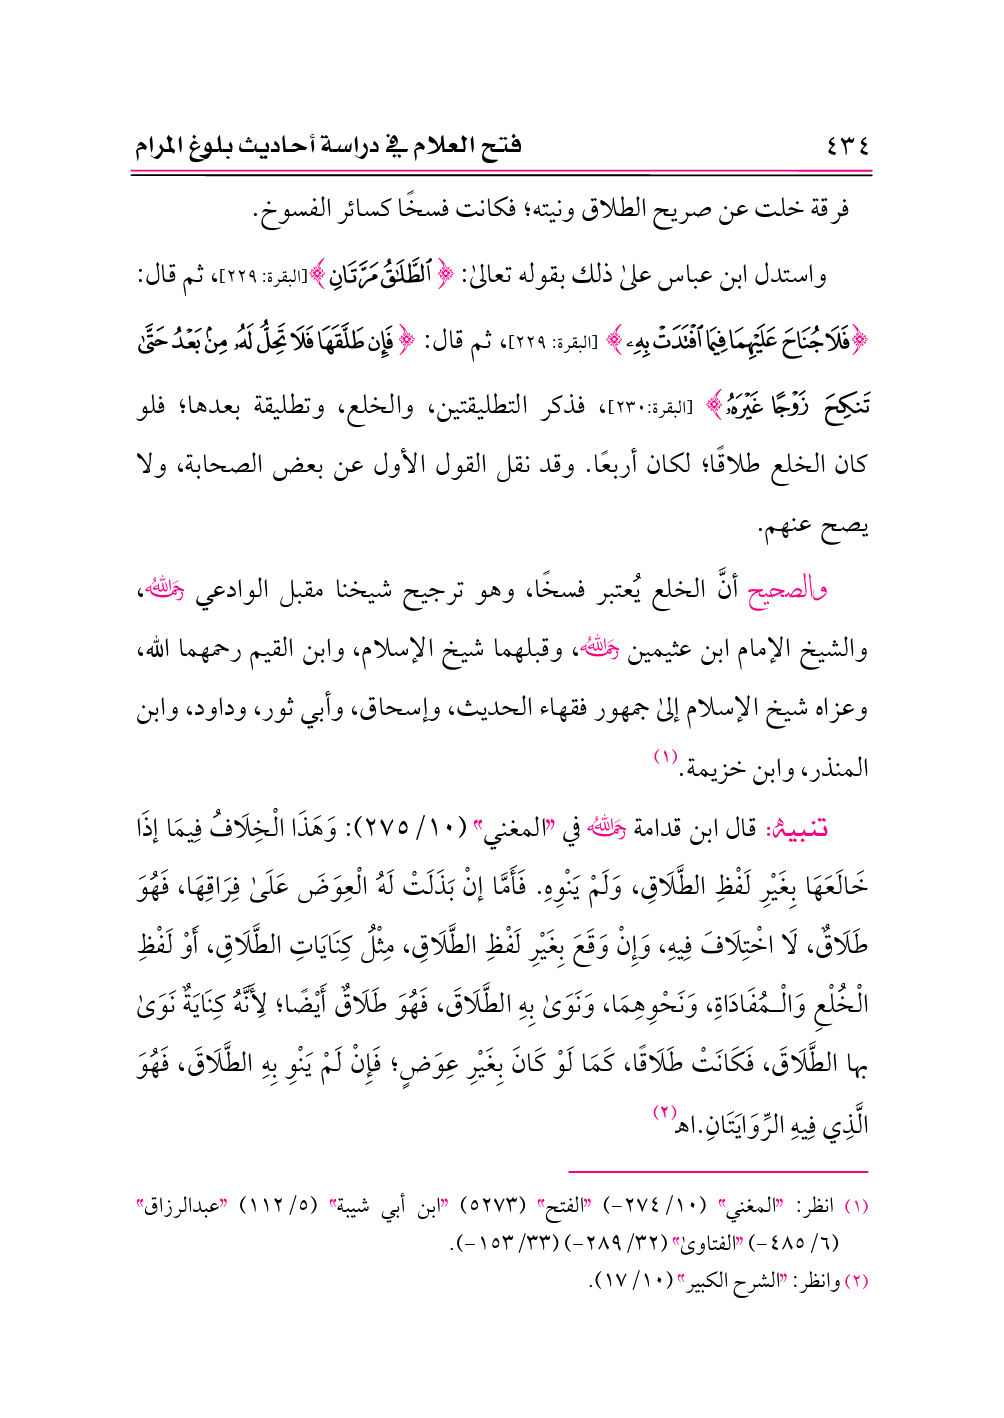 ٤٣٤ فتح العلام في دراسة أحاديث بلوغ المرام
فرقة خلت عن صريح الطلاق ونيته؛ فكانت فسخًا كسائر الفسوخ.
واستدل ابن عباس علىٰ ذلك بقوله تعالىٰ: ﴿ٱلطَّلَٰقُ مَرَّتَانِ﴾[البقرة: ٢٢٩]، ثم قال:
﴿فَلَا جُنَاحَ عَلَيْهِمَا فِيمَا ٱفْتَدَتْ بِهِۦ﴾ [البقرة: ٢٢٩]، ثم قال: ﴿فَإِن طَلَّقَهَا فَلَا تَحِلُّ لَهُۥ مِنۢ بَعْدُ حَتَّىٰ
تَنكِحَ زَوْجًا غَيْرَهُۥ﴾ [البقرة:٢٣٠]، فذكر التطليقتين، والخلع، وتطليقة بعدها؛ فلو
كان الخلع طلاقًا؛ لكان أربعًا. وقد نقل القول الأول عن بعض الصحابة، ولا
يصح عنهم.
والصحيح أنَّ الخلع يُعتبر فسخًا، وهو ترجيح شيخنا مقبل الوادعي رحمه الله،
والشيخ الإمام ابن عثيمين رحمه الله، وقبلهما شيخ الإسلام، وابن القيم رحمهما الله،
وعزاه شيخ الإسلام إلىٰ جمهور فقهاء الحديث، وإسحاق، وأبي ثور، وداود، وابن
المنذر، وابن خزيمة.(١)
تنبيه: قال ابن قدامة رحمه الله في "المغني" (١٠/ ٢٧٥): وَهَذَا الْخِلَافُ فِيمَا إذَا
خَالَعَهَا بِغَيْرِ لَفْظِ الطَّلَاقِ، وَلَمْ يَنْوِهِ. فَأَمَّا إنْ بَذَلَتْ لَهُ الْعِوَضَ عَلَىٰ فِرَاقِهَا، فَهُوَ
طَلَاقٌ، لَا اخْتِلَافَ فِيهِ، وَإِنْ وَقَعَ بِغَيْرِ لَفْظِ الطَّلَاقِ، مِثْلُ كِنَايَاتِ الطَّلَاقِ، أَوْ لَفْظِ
الْخُلْعِ وَالْـمُفَادَاةِ، وَنَحْوِهِمَا، وَنَوَىٰ بِهِ الطَّلَاقَ، فَهُوَ طَلَاقٌ أَيْضًا؛ لِأَنَّهُ كِنَايَةٌ نَوَىٰ
بها الطَّلَاقَ، فَكَانَتْ طَلَاقًا، كَمَا لَوْ كَانَ بِغَيْرِ عِوَضٍ؛ فَإِنْ لَمْ يَنْوِ بِهِ الطَّلَاقَ، فَهُوَ
الَّذِي فِيهِ الرِّوَايَتَانِ.اهـ(٢)
(١) انظر: "المغني" (١٠/ ٢٧٤-) "الفتح" (٥٢٧٣) "ابن أبي شيبة" (٥/ ١١٢) "عبدالرزاق"
(٦/ ٤٨٥-) "الفتاوىٰ" (٣٢/ ٢٨٩-) (٣٣/ ١٥٣-).
(٢) وانظر: "الشرح الكبير" (١٠/ ١٧).